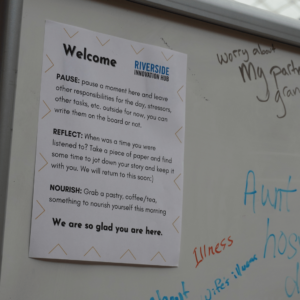 Welcome
RIVERSIDE
INNOVATION HUB
PAUSE: pause a moment here and leave
other responsibilities for the day, stressors,
other tasks, etc. outside for now, you can
write them on the board or not.
REFLECT: When was a time you were
listened to? Take a piece of paper and find
some time to jot down your story and keep it
with you. We will return to this soon:)
NOURISH: Grab a pastry, coffee/tea,
something to nourish yourself this morning
We are so glad you are here.
Worry about
My
Illness